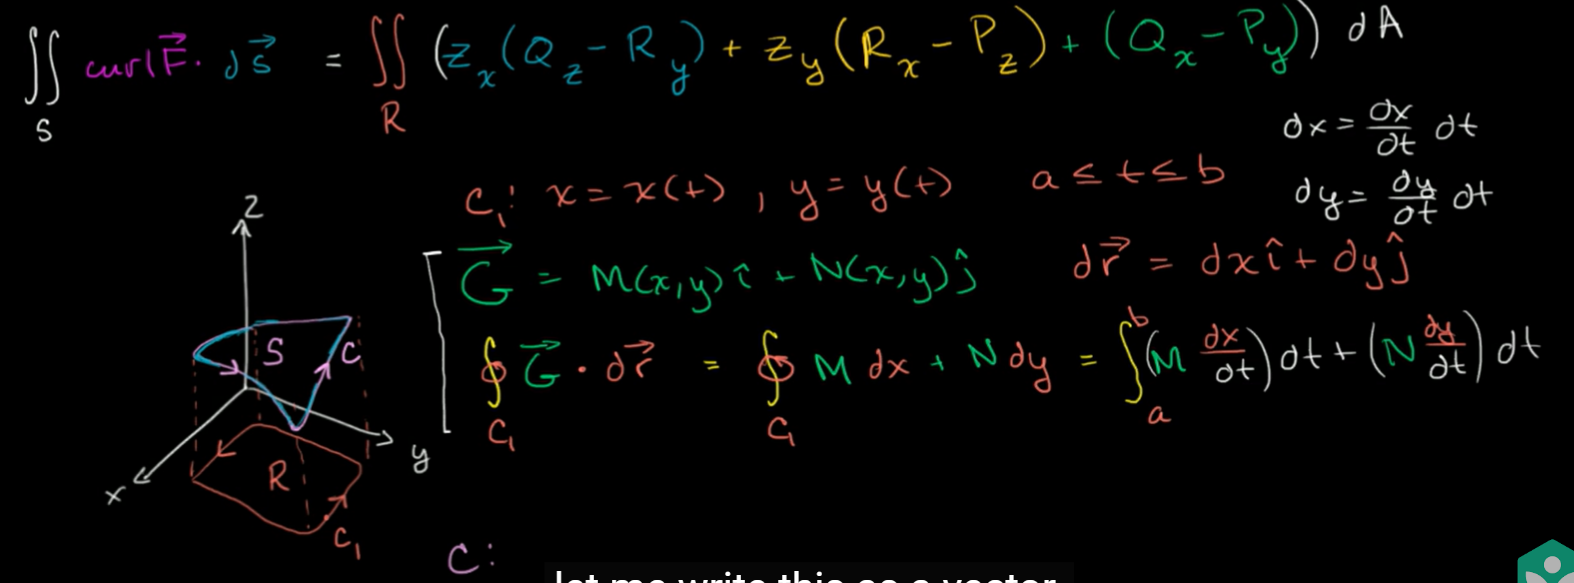 ∬_S curl F⃗ · dS⃗ = ∬_R (z_x(Q_z − R_y) + z_y(R_x − P_z) + (Q_x − P_y)) dA
dx = ∂x/∂t dt
C₁: x = x(t), y = y(t) a ≤ t ≤ b
dy = ∂y/∂t dt
G⃗ = M(x,y)î + N(x,y)ĵ dr⃗ = dxî + dyĵ
∮_C₁ G⃗ · dr⃗ = ∮_C₁ M dx + N dy = ∫_a^b (M dx/dt) dt + (N dy/dt) dt
z
S C
y
R
x
C₁
C:
let me write this as a vector